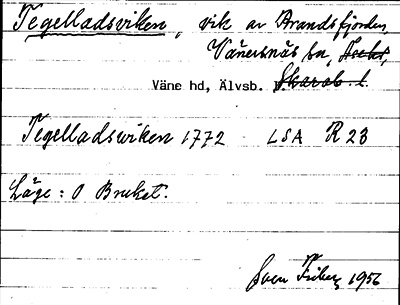 Tegelladsviken, vik av Brandsfjorden,
Vänersnäs sn,
Väne hd, Älvsb. Skarab. l.
Tegelladswiken 1772 LSA R 23
Läge: O Bruket.
Sven Friberg 1956